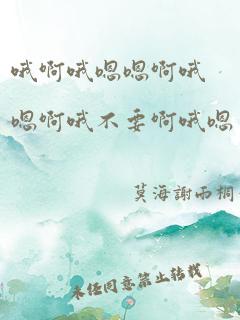 哦啊哦嗯嗯啊哦
嗯啊哦不要啊哦嗯
莫海謝雨桐
未经同意禁止转载